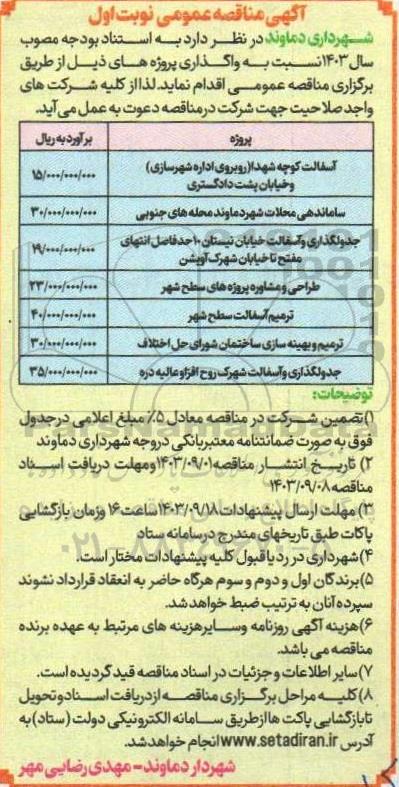 آگهی مناقصه عمومی نوبت اول
شهرداری دماوند در نظر دارد به استناد بودجه مصوب
سال ۱۴۰۳ نسبت به واگذاری پروژه های ذیل از طریق
برگزاری مناقصه عمومی اقدام نماید. لذا از کلیه شرکت های
واجد صلاحیت جهت شرکت در مناقصه دعوت به عمل می آید.
پروژه برآورد به ریال
آسفالت کوچه شهدا (روبروی اداره شهرسازی)
و خیابان پشت دادگستری ۱۵/۰۰۰/۰۰۰/۰۰۰
ساماندهی محلات شهر دماوند محله های جنوبی ۳۰/۰۰۰/۰۰۰/۰۰۰
جدولگذاری و آسفالت خیابان نیستان ۱۰ حدفاصل انتهای
مفتح تا خیابان شهرک آویشن ۱۹/۰۰۰/۰۰۰/۰۰۰
طراحی و مشاوره پروژه های سطح شهر ۲۳/۰۰۰/۰۰۰/۰۰۰
ترمیم آسفالت سطح شهر ۴۰/۰۰۰/۰۰۰/۰۰۰
ترمیم و بهینه سازی ساختمان شورای حل اختلاف ۳۰/۰۰۰/۰۰۰/۰۰۰
جدولگذاری و آسفالت شهرک روح افزا و عالیه دره ۳۵/۰۰۰/۰۰۰/۰۰۰
توضیحات:
۱) تضمین شرکت در مناقصه معادل ۵٪ مبلغ اعلامی در جدول
فوق به صورت ضمانتنامه معتبر بانکی در وجه شهرداری دماوند
۲) تاریخ انتشار مناقصه ۱۴۰۳/۰۹/۰۱ و مهلت دریافت اسناد
مناقصه ۱۴۰۳/۰۹/۰۸
۳) مهلت ارسال پیشنهادات ۱۴۰۳/۰۹/۱۸ ساعت ۱۶ و زمان بازگشایی
پاکات طبق تاریخهای مندرج در سامانه ستاد
۴) شهرداری در رد یا قبول کلیه پیشنهادات مختار است.
۵) برندگان اول و دوم و سوم هرگاه حاضر به انعقاد قرارداد نشوند
سپرده آنان به ترتیب ضبط خواهد شد.
۶) هزینه آگهی روزنامه و سایر هزینه های مرتبط به عهده برنده
مناقصه می باشد.
۷) سایر اطلاعات و جزئیات در اسناد مناقصه قید گردیده است.
۸) کلیه مراحل برگزاری مناقصه از دریافت اسناد و تحویل
تا بازگشایی پاکت ها از طریق سامانه الکترونیکی دولت (ستاد) به
آدرس www.setadiran.ir انجام خواهد شد.
شهردار دماوند - مهدی رضایی مهر